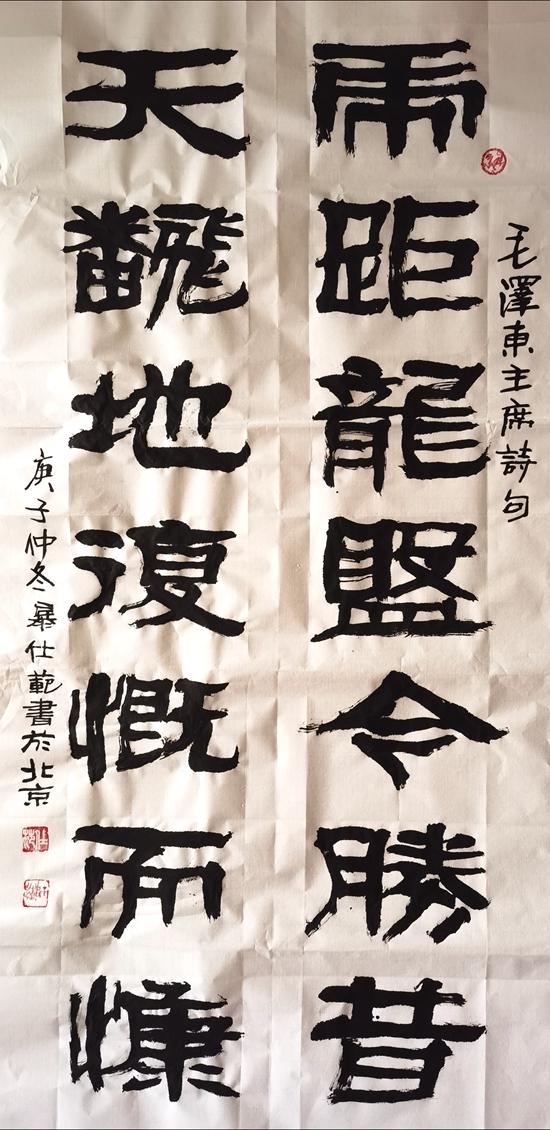 毛澤東主席詩句
乕距龍盤令勝昔
天飜地復慨而慷
庚子仲冬仕範書於北京